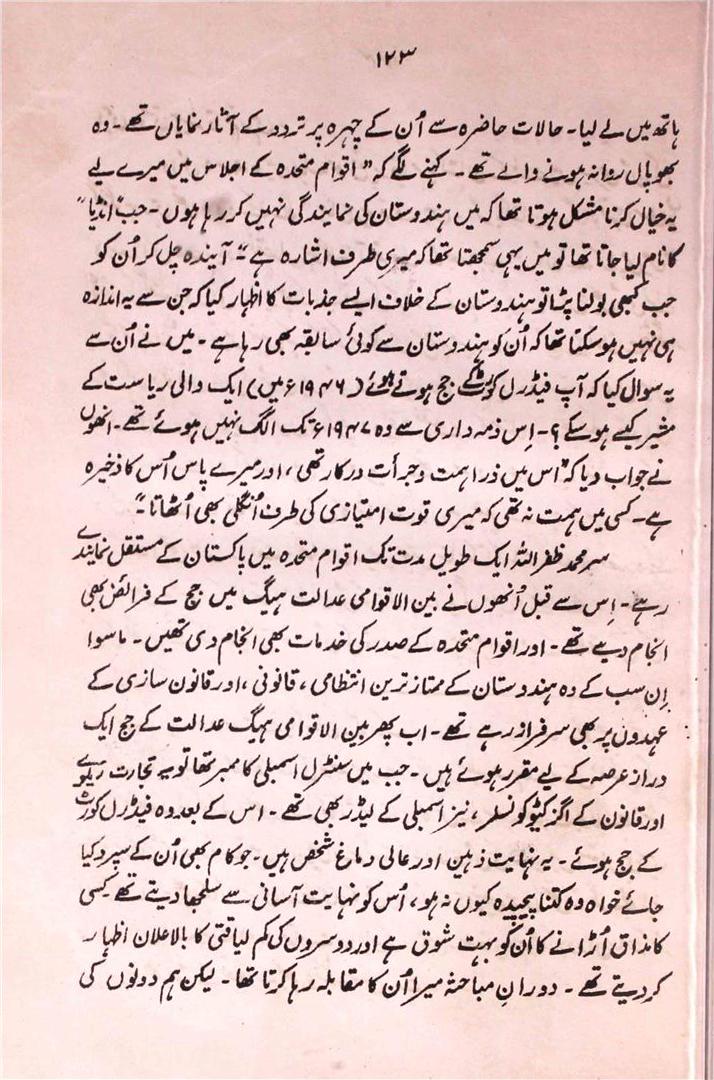 ۱۲۳
ہاتھ میں لے لیا۔ حالات حاضرہ سے اُن کے چہرہ پر تردد کے آثار نمایاں تھے۔ وہ
بھوپال روانہ ہونے والے تھے۔ کہنے لگے کہ "اقوام متحدہ کے اجلاس میں میرے لیے
یہ خیال کرنا مشکل ہوتا تھا کہ میں ہندوستان کی نمایندگی نہیں کر رہا ہوں۔ جب "انڈیا"
کا نام لیا جاتا تھا تو میں یہی سمجھتا تھا کہ میری طرف اشارہ ہے"۔ آیندہ چل کر اُن کو
جب کبھی بولنا پڑا تو ہندوستان کے خلاف ایسے جذبات کا اظہار کیا کہ جن سے یہ اندازہ
ہی نہیں ہو سکتا تھا کہ اُن کو ہندوستان سے کوئی سابقہ بھی رہا ہے۔ میں نے اُن سے
یہ سوال کیا کہ آپ فیڈرل کورٹ کے جج ہوتے ہوئے (۱۹۴۶ء میں) ایک والی ریاست کے
مشیر کیسے ہو سکے؟۔ اِس ذمہ داری سے وہ ۱۹۴۷ء تک الگ نہیں ہوئے تھے۔ انھوں
نے جواب دیا کہ "اس میں ذرا ہمت وجرأت درکار تھی، اور میرے پاس اُس کا ذخیرہ
ہے۔ کسی میں ہمت نہ تھی کہ میری قوت امتیازی کی طرف اُنگلی بھی اُٹھاتا"۔
سر محمد ظفر اللہ ایک طویل مدت تک اقوام متحدہ میں پاکستان کے مستقل نمایندے
رہے۔ اِس سے قبل اُنھوں نے بین الاقوامی عدالت ہیگ میں جج کے فرائض بھی
انجام دیے تھے۔ اور اقوام متحدہ کے صدر کی خدمات بھی انجام دی تھیں۔ ماسوا
اِن سب کے وہ ہندوستان کے ممتاز ترین انتظامی، قانونی، اور قانون سازی کے
عہدوں پر بھی سرفراز رہے تھے۔ اب پھر بین الاقوامی ہیگ عدالت کے جج ایک
دراز عرصہ کے لیے مقرر ہوئے ہیں۔ جب میں سنٹرل اسمبلی کا ممبر تھا تو یہ تجارت ریلوے
اور قانون کے اگزکیٹو کونسلر، نیز اسمبلی کے لیڈر بھی تھے۔ اس کے بعد وہ فیڈرل کورٹ
کے جج ہوئے۔ یہ نہایت ذہین اور عالی دماغ شخص ہیں۔ جو کام بھی اُن کے سپرد کیا
جائے خواہ وہ کتنا پیچیدہ کیوں نہ ہو، اُس کو نہایت آسانی سے سلجھا دیتے تھے کسی
کا مذاق اُڑانے کا اُن کو بہت شوق ہے اور دوسروں کی کم لیاقتی کا بالاعلان اظہار
کر دیتے تھے۔ دورانِ مباحثہ میرا اُن کا مقابلہ رہا کرتا تھا۔ لیکن ہم دونوں کی